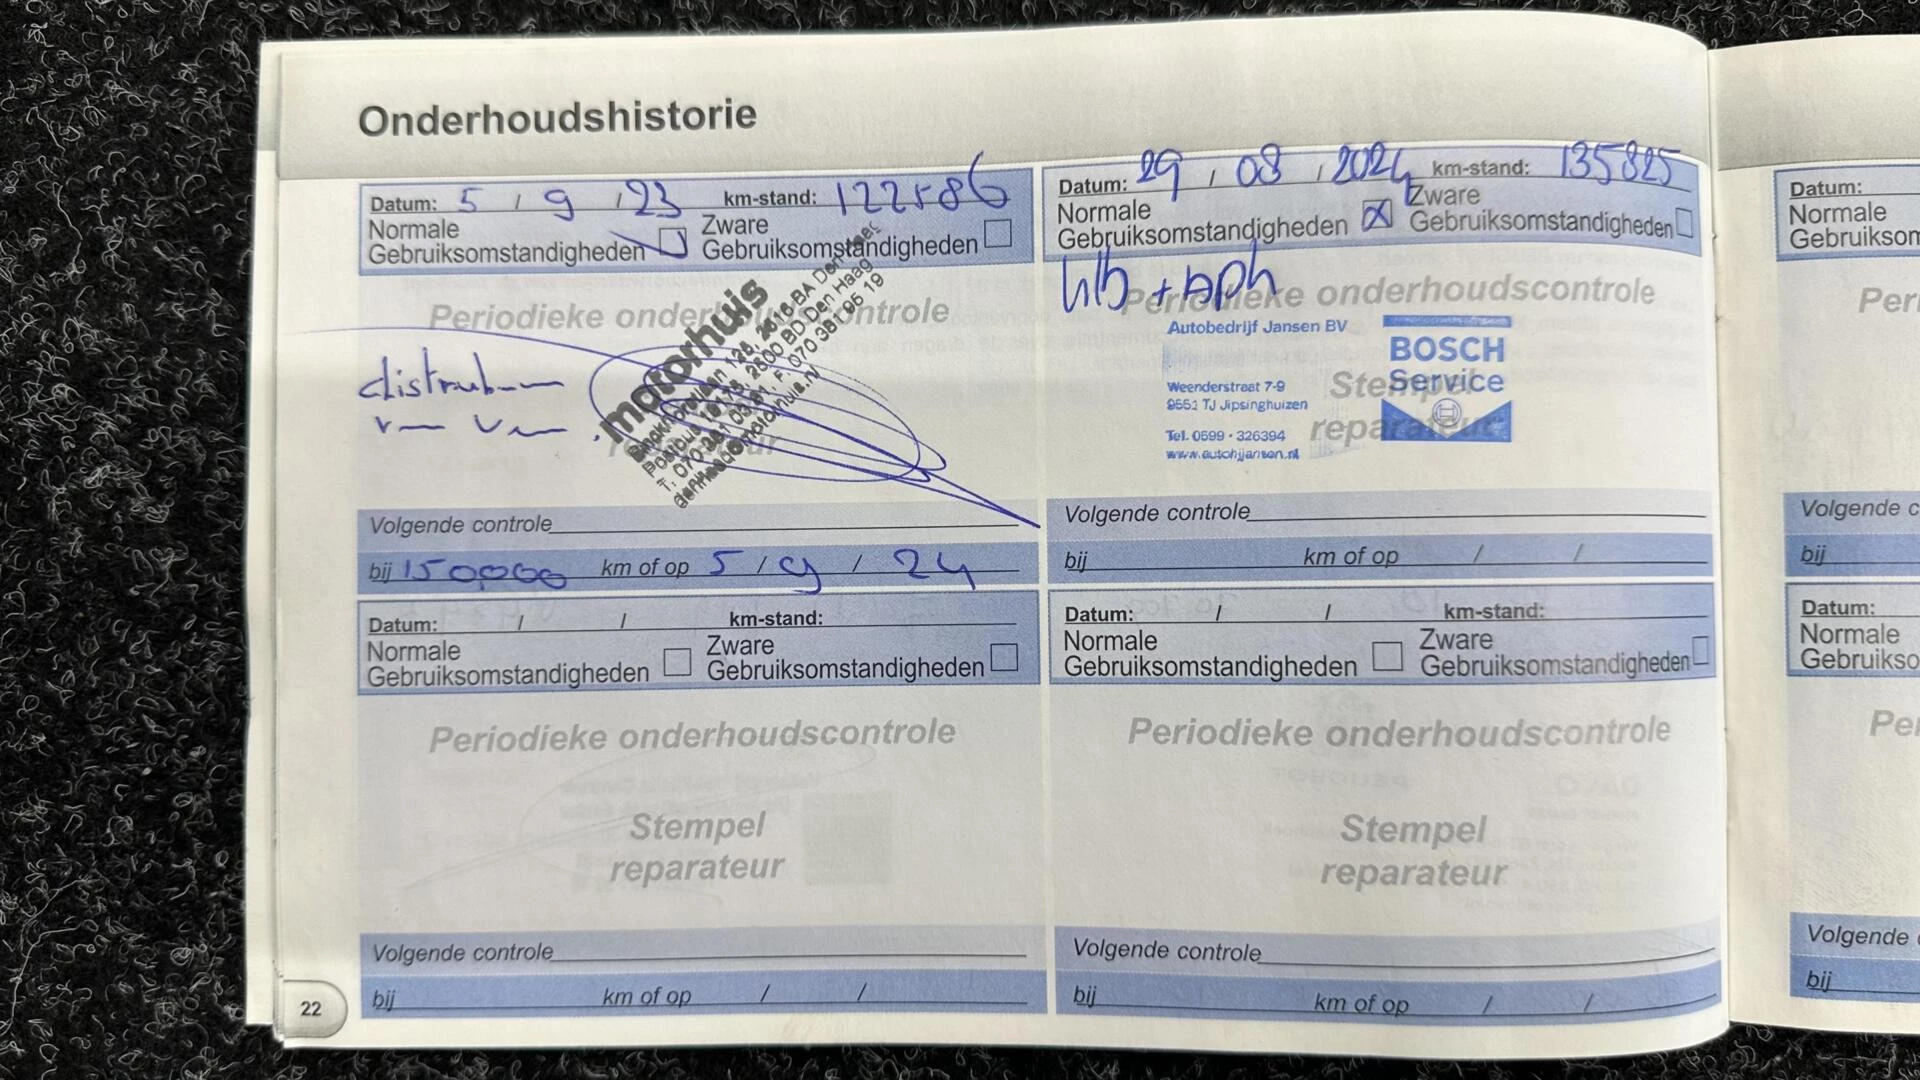 Onderhoudshistorie
Datum: 5 / 9 / 23 km-stand: 122586
Normale Gebruiksomstandigheden
Zware Gebruiksomstandigheden
Periodieke onderhoudscontrole
motorhuis
Volgende controle
bij 150.000 km of op 5 / 9 / 24
Datum: 29 / 08 / 2024 km-stand: 135825
Normale Gebruiksomstandigheden X
Zware Gebruiksomstandigheden
Periodieke onderhoudscontrole
Autobedrijf Jansen BV
Weenderstraat 7-9
9551 TJ Jipsinghuizen
Tel. 0599 - 326394
www.autobjjansen.nl
BOSCH
Service
Stempel
reparateur
Volgende controle
bij km of op / /
Datum: / / km-stand:
Normale Gebruiksomstandigheden
Zware Gebruiksomstandigheden
Periodieke onderhoudscontrole
Stempel
reparateur
Volgende controle
bij km of op / /
Datum: / / km-stand:
Normale Gebruiksomstandigheden
Zware Gebruiksomstandigheden
Periodieke onderhoudscontrole
Stempel
reparateur
Volgende controle
bij km of op / /
22
Datum:
Normale
Gebruiksom
Peri
Volgende c
bij
Datum:
Normale
Gebruikso
Pe
Volgende
bij